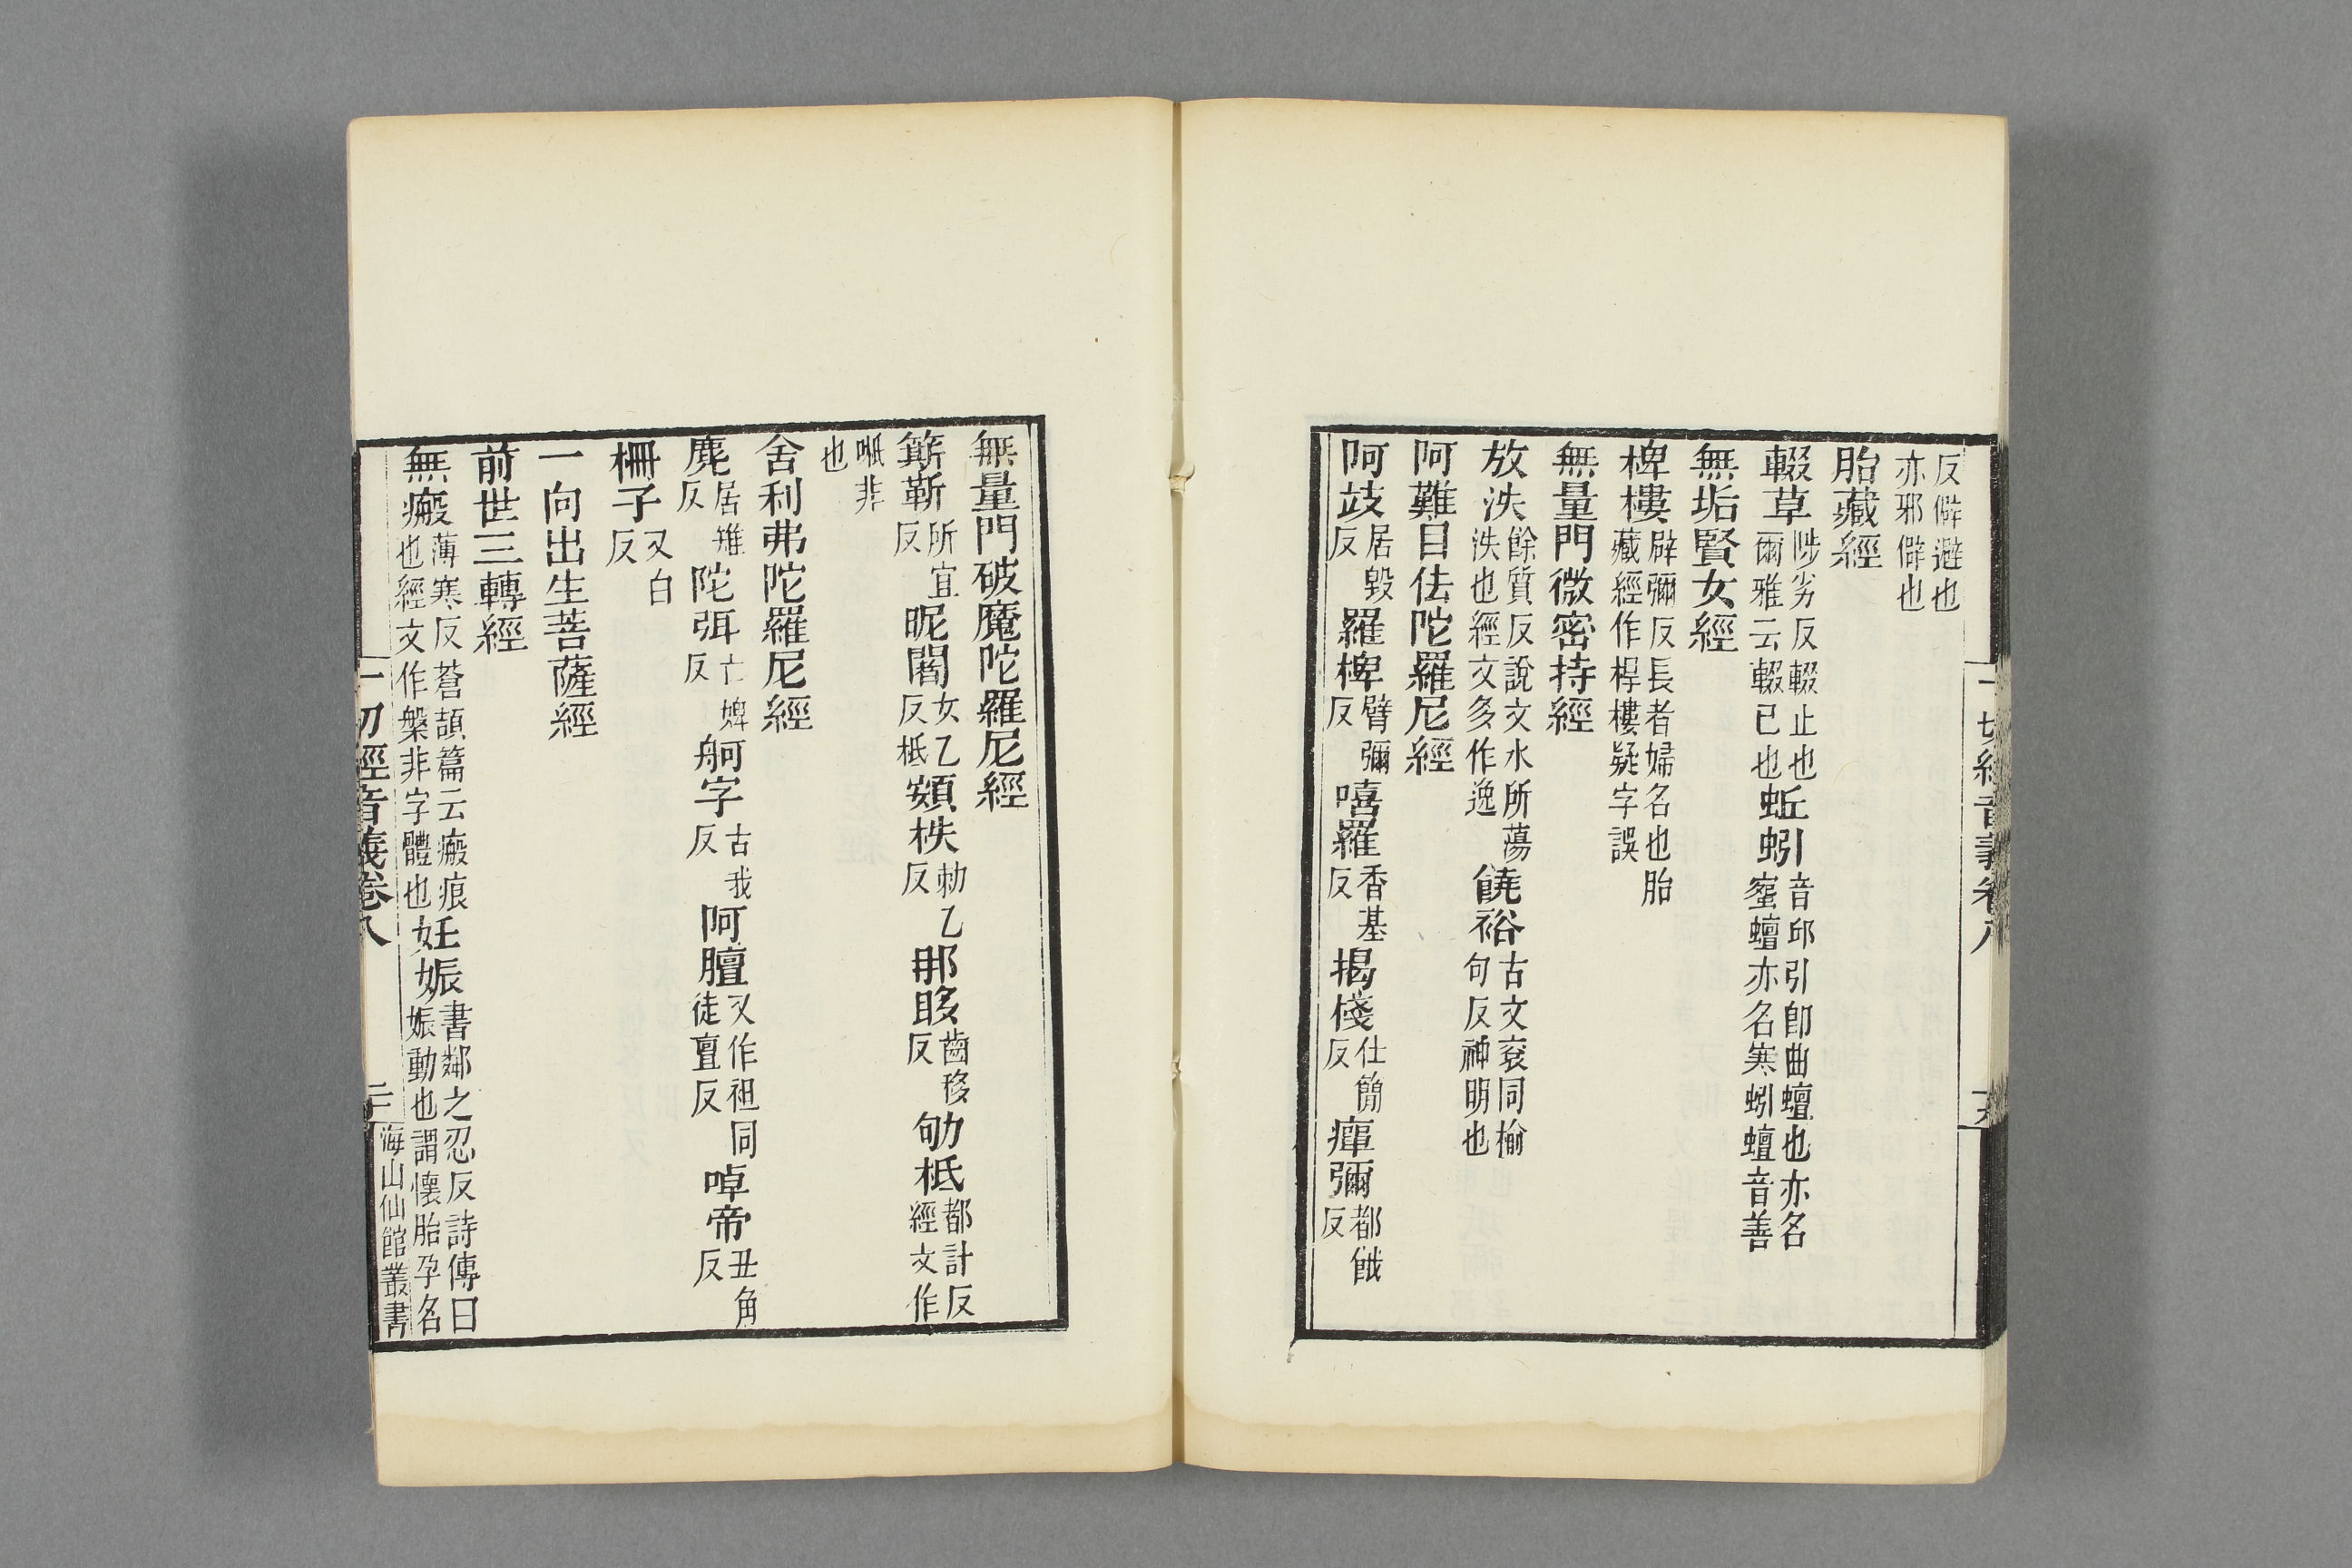 反僻避也亦邪僻也
胎藏經
輟草陟劣反輟止也爾雅云輟已也蚯蚓音邱引卽曲蟺也亦名蜜蟺亦名寒蚓蟺音善
無垢賢女經
椑樓辟彌反長者婦名也胎藏經作桿樓疑字誤
無量門微密持經
放泆餘質反說文水所蕩泆也經文多作逸饒裕古文袞同榆句反神明也
阿難目佉陀羅尼經
阿歧居毀反羅椑臂彌反嘻羅香基反揭棧仕簡反癉彌都餓反
一切經音義卷八
無量門破魔陀羅尼經
簛靳所宜反昵闍女乙反柢頞柣勑乙反那眵齒移反劬柢都計反經文作
㖷非也
舍利弗陀羅尼經
麂居雉反陀弭亡婢反舸字古我反阿膻又作袒同徒亶反啅帝丑角反
柵子叉白反
一向出生菩薩經
前世三轉經
無瘢薄寒反蒼頡篇云瘢痕也經文作槃非字體也妊娠書鄰之忍反詩傳曰娠動也謂懷胎孕名
一切經音義卷八
二十
海山仙館叢書